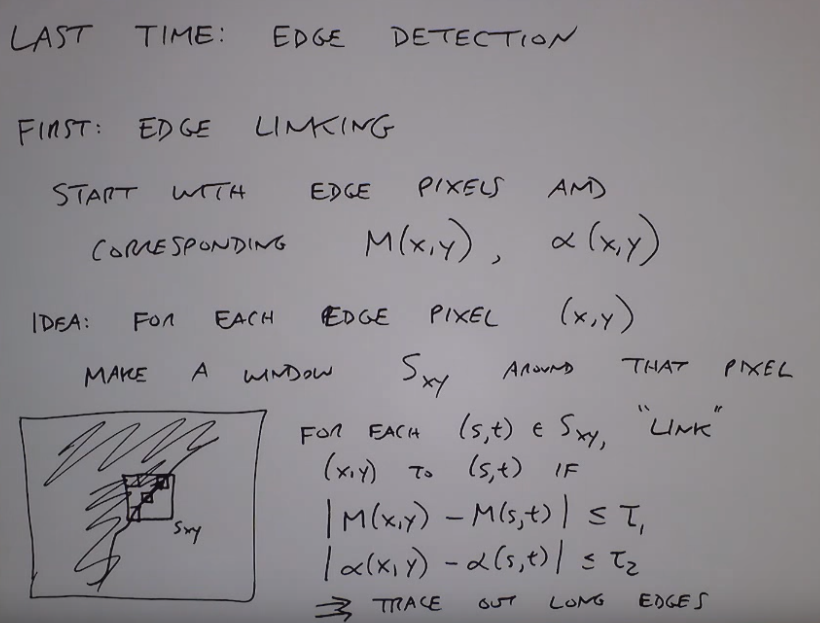 LAST TIME: EDGE DETECTION
FIRST: EDGE LINKING
START WITH EDGE PIXELS AND
CORRESPONDING M(x,y), α(x,y)
IDEA: FOR EACH EDGE PIXEL (x,y)
MAKE A WINDOW Sxy AROUND THAT PIXEL
FOR EACH (s,t) ∈ Sxy, "LINK"
(x,y) TO (s,t) IF
|M(x,y) - M(s,t)| ≤ τ1
|α(x,y) - α(s,t)| ≤ τ2
⇒ TRACE OUT LONG EDGES
Sxy